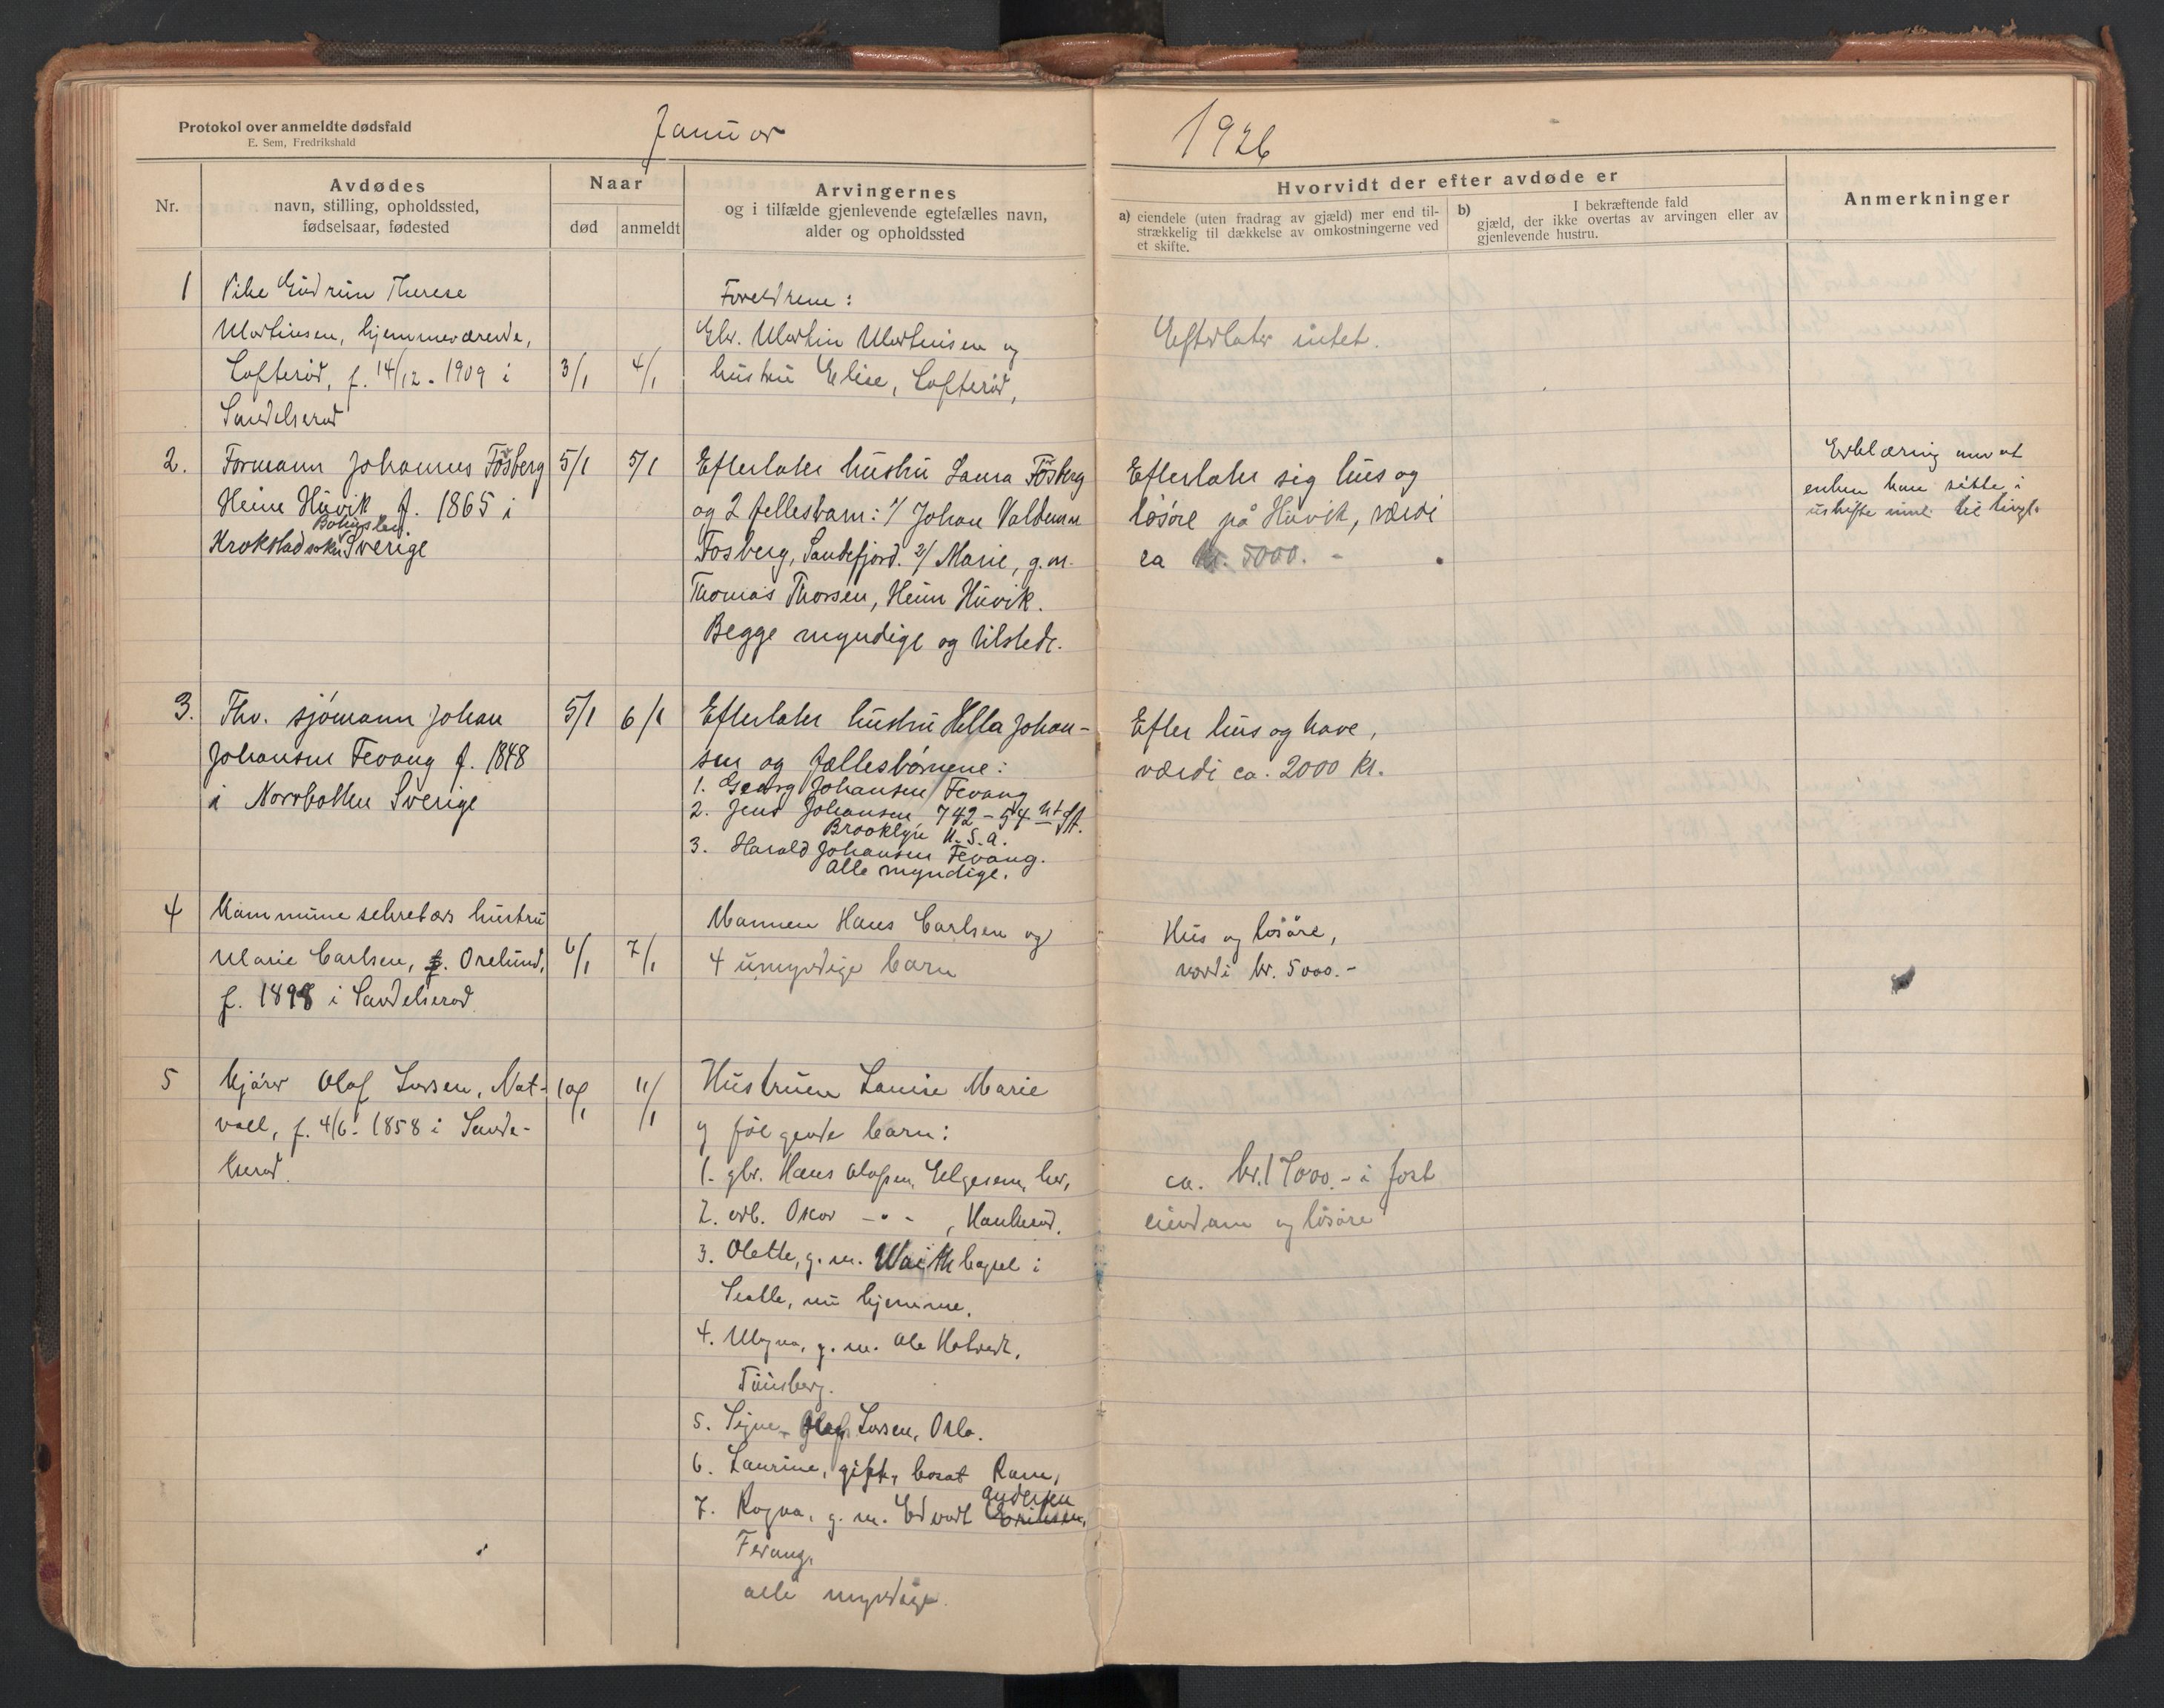 Protokol over anmeldte dødsfald
E. Sem, Fredrikshald
Januar
1926
Nr.
Avdødes
navn, stilling, opholdssted,
fødselsaar, fødested
Naar
død
anmeldt
Arvingernes
og i tilfælde gjenlevende egtefælles navn,
alder og opholdssted
Hvorvidt der efter avdøde er
a) eiendele (uten fradrag av gjæld) mer end til-
strækkelig til dækkelse av omkostningerne ved
et skifte.
b) I bekræftende fald
gjæld, der ikke overtas av arvingen eller av
gjenlevende hustru.
Anmerkninger
1
Pike Gudrun Therese
Martinsen, hjemmeværende,
Lofterød, f. 14/12-1909 i
Sandeherad
3/1
4/1
Foreldrene:
Martin Martinsen og
hustru Elise, Lofterød,
Efterlater intet.
2.
Formann Johannes Fosberg
Heim Huvik f. 1865 i
Bohuslen
Krokstad sokn Sverige
5/1
5/1
Efterlater hustru Laura Fosberg
og 2 fellesbarn: 1/ Johan Valdemar
Fosberg, Sandefjord. 2/ Marie, g.m.
Thomas Thorsen, Heim Huvik.
Begge myndige og tilstede.
Efterlater sig hus og
løsøre på Huvik, værdi
ca kr. 5000. -
Erklæring om at
enken kan sitte i
uskifte til tingl.
3.
Fhv. sjømann Johan
Johansen Fevang f. 1848
i Norrbotten Sverige
5/1
6/1
Efterlater hustru Hella Johan-
sen og fællesbørnene:
1. Georg Johansen Fevang
2. Jens Johansen 742-54 ht St.
Brooklyn U.S.A.
3. Harald Johansen Fevang.
Alle myndige.
Efter hus og have,
værdi ca. 2000 kr.
4
Kommunesekretærs hustru
Marie Carlsen, f. Orelund,
f. 1898 i Sandeherad
6/1
7/1
Mannen Hans Carlsen og
4 umyndige barn
Hus og løsøre,
værdi kr. 5000.-
5
Kjører Olaf Larsen, Nat-
vall, f. 4/6-1858 i Sande-
herad.
10/1
11/1
Hustruen Lovise Marie
og følgende barn:
1. gbr. Hans Olafsen, her,
2. arb. Oscar -"- ,
3. Olette, g.m. bosat i
Seatle, nu hjemme.
4. Magna, g.m. Ole
Tønsberg.
5. Signe Larsen, Oslo.
6. Laurine, gift, bosat
7. Ragna, g.m. Edvart Eriksen,
Andersen
Fevang,
alle myndige.
ca. kr. 17000.- i fast
eiendom og løsøre